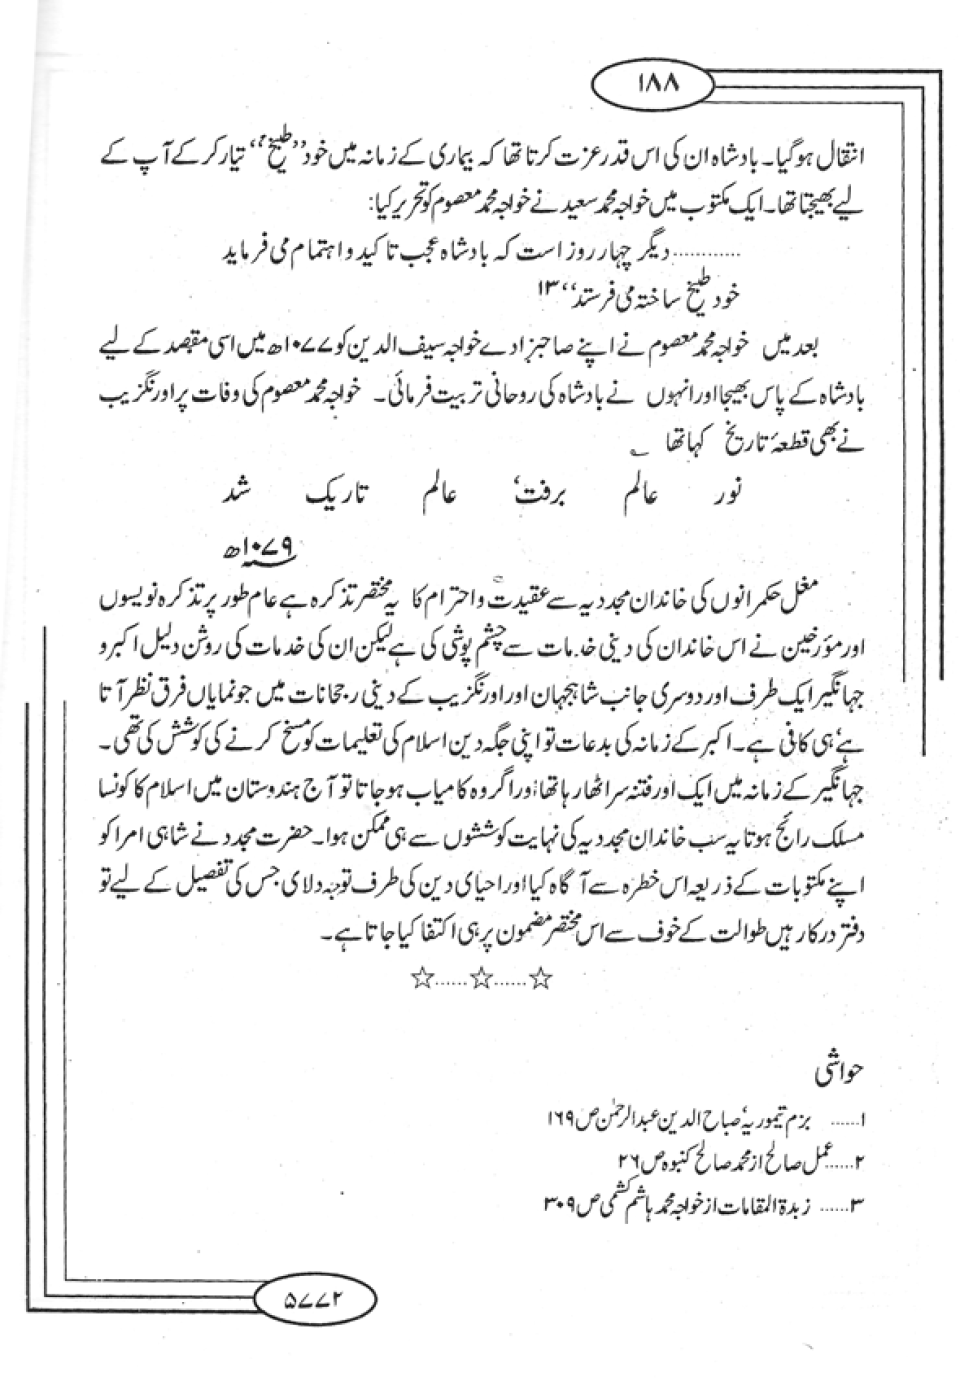 ۱۸۸
انتقال ہوگیا۔ بادشاہ ان کی اس قدر عزت کرتا تھا کہ بیماری کے زمانہ میں خود ’’طبخ‘‘ تیار کر کے آپ کے
لیے بھیجتا تھا۔ ایک مکتوب میں خواجہ محمد سعید نے خواجہ محمد معصوم کو تحریر کیا:
............ دیگر چہار روز است کہ بادشاہ عجب تاکید و اہتمام می فرماید
خود طبخ ساختہ می فرستد‘‘ ۱۳
بعد میں خواجہ محمد معصوم نے اپنے صاحبزادے خواجہ سیف الدین کو ۱۰۷۷ھ میں اسی مقصد کے لیے
بادشاہ کے پاس بھیجا اور انہوں نے بادشاہ کی روحانی تربیت فرمائی۔ خواجہ محمد معصوم کی وفات پر اورنگزیب
نے بھی قطعۂ تاریخ کہا تھا ؎
نور عالم برفت‘ عالم تاریک شد
۱۰۷۹ھ
مغل حکمرانوں کی خاندان مجددیہ سے عقیدت و احترام کا یہ مختصر تذکرہ ہے عام طور پر تذکرہ نویسوں
اور مؤرخین نے اس خاندان کی دینی خدمات سے چشم پوشی کی ہے لیکن ان کی خدمات کی روشن دلیل اکبر و
جہانگیر ایک طرف اور دوسری جانب شاہجہان اور اورنگزیب کے دینی رجحانات میں جو نمایاں فرق نظر آتا
ہے‘ ہی کافی ہے۔ اکبر کے زمانہ کی بدعات تو اپنی جگہ دین اسلام کی تعلیمات کو مسخ کرنے کی کوشش کی تھی۔
جہانگیر کے زمانہ میں ایک اور فتنہ سر اٹھا رہا تھا‘ اور اگر وہ کامیاب ہو جاتا تو آج ہندوستان میں اسلام کا کونسا
مسلک رائج ہوتا یہ سب خاندان مجددیہ کی نہایت کوششوں سے ہی ممکن ہوا۔ حضرت مجدد نے شاہی امرا کو
اپنے مکتوبات کے ذریعہ اس خطرہ سے آگاہ کیا اور احیای دین کی طرف توجہ دلای جس کی تفصیل کے لیے تو
دفتر درکار ہیں طوالت کے خوف سے اس مختصر مضمون پر ہی اکتفا کیا جاتا ہے۔
☆......☆......☆
حواشی
۱...... بزم تیموریہ‘ صباح الدین عبدالرحمٰن ص ۱۶۹
۲...... عمل صالح از محمد صالح کنبوہ ص ۲۶
۳...... زبدۃ المقامات از خواجہ محمد ہاشم کشمی ص ۳۰۹
۵۷۷۲